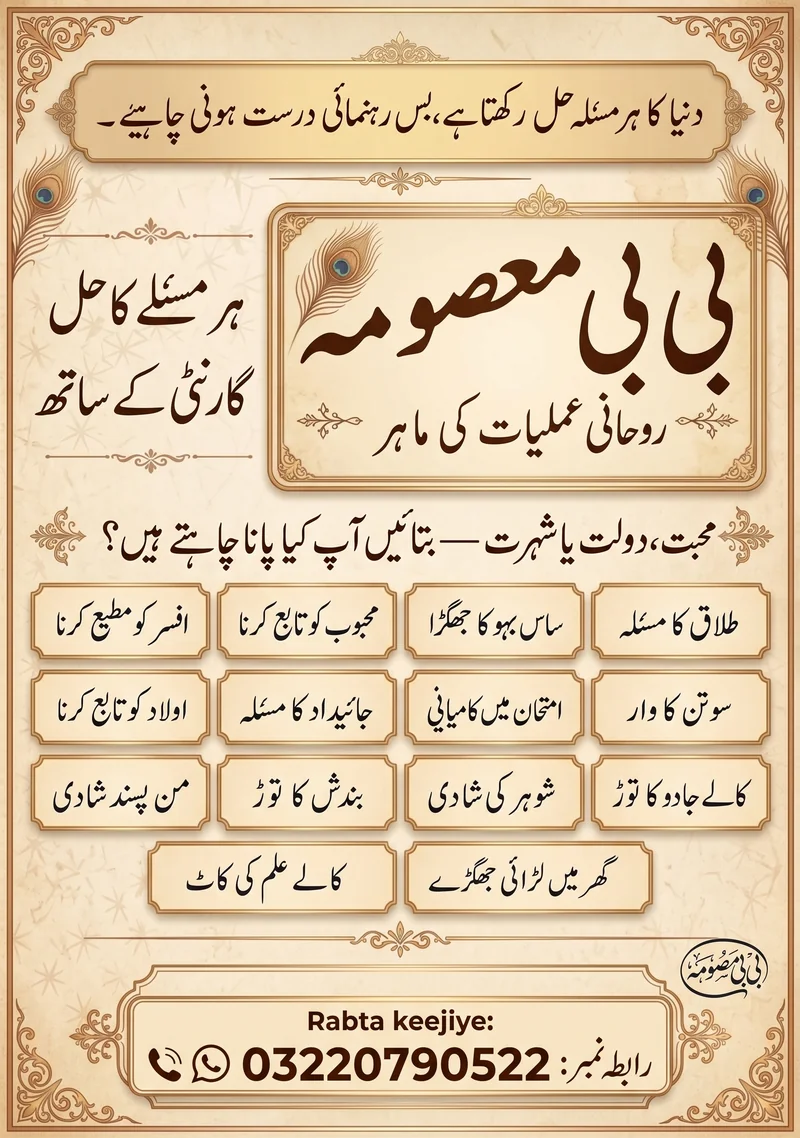 دنیا کا ہر مسئلہ حل رکھتا ہے، بس رہنمائی درست ہونی چاہیئے۔
بی بی معصومہ
روحانی عملیات کی ماہر
ہر مسئلے کا حل
گارنٹی کے ساتھ
محبت، دولت یا شہرت — بتائیں آپ کیا پانا چاہتے ہیں؟
طلاق کا مسئلہ
ساس بہو کا جھگڑا
محبوب کو تابع کرنا
افسر کو مطیع کرنا
سوتن کا وار
امتحان میں کامیابی
جائیداد کا مسئلہ
اولاد کو تابع کرنا
کالے جادو کا توڑ
شوہر کی شادی
بندش کا توڑ
من پسند شادی
گھر میں لڑائی جھگڑے
کالے علم کی کاٹ
بی بی معصومہ
Rabta keejiye:
رابطہ نمبر: 03220790522